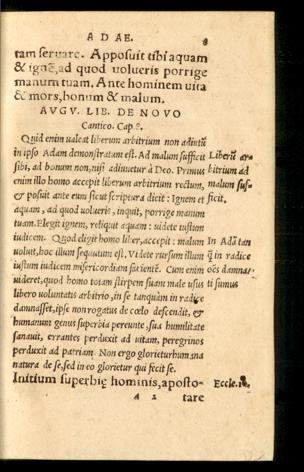 A D AE. 8
tam seruare. Apposuit tibi aquam
& ignē, ad quod volueris porrige
manum tuam. Ante hominem uita
& mors, bonum & malum.
AVGV. LIB. DE NOVO
Cantico. Cap. 8.
Quid enim ualeat liberum arbitrium non adiutū
in ipso Adam demonstratum est. Ad malum sufficit
sibi, ad bonum non, nisi adiuuetur à Deo. Primus
enim illo homo accepit liberum arbitrium rectum,
& posuit ante eum sicut scriptura dicit: Ignem et
aquam, ad quod uolueris, inquit, porrige manum
tuam. Elegit ignem, reliquit aquam: uidete iustum
iudicem. Quod eligit homo liber, accepit: malum
uoluit, hoc illum sequutum est. Videte rursum illum
iustum iudicem misericordiam facientē. Cum enim
uideret, quod homo totam stirpem suam male usus
libero uoluntatis arbitrio, in se tanquàm in radice
damnasset, ipse non rogatus de cœlo descendit, &
humanum genus superbia pereunte, sua humilitate
sanauit, errantes perduxit ad uitam, peregrinos
perduxit ad patriam. Non ergo glorietur humana
natura de se, sed in eo glorietur qui fecit se.
Initium superbię hominis, aposto-
A 2 tare
Liberū ar-
bitrium ad
malum suf-
ficit.
In Adā tan
q̄ in radice
oēs damna-
ti sumus
Eccle. 10.